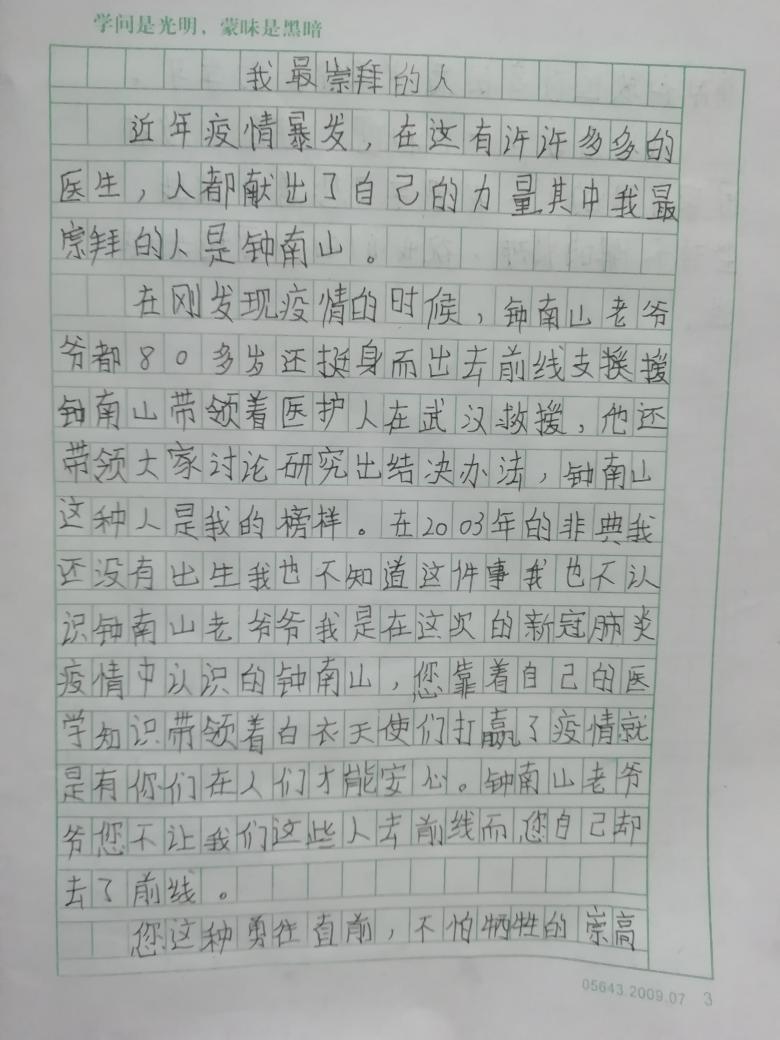 学问是光明，蒙昧是黑暗
我最崇拜的人
近年疫情暴发，在这有许许多多的
医生，人都献出了自己的力量其中我最
崇拜的人是钟南山。
在刚发现疫情的时候，钟南山老爷
爷都80多岁还挺身而出去前线支援援
钟南山带领着医护人在武汉救援，他还
带领大家讨论研究出结决办法，钟南山
这种人是我的榜样。在2003年的非典我
还没有出生我也不知道这件事我也不认
识钟南山老爷爷我是在这次的新冠肺炎
疫情中认识的钟南山，您靠着自己的医
学知识带领着白衣天使们打赢了疫情就
是有你们在人们才能安心。钟南山老爷
爷您不让我们这些人去前线而您自己却
去了前线。
您这种勇往直前，不怕牺牲的崇高
05643.2009.07 3